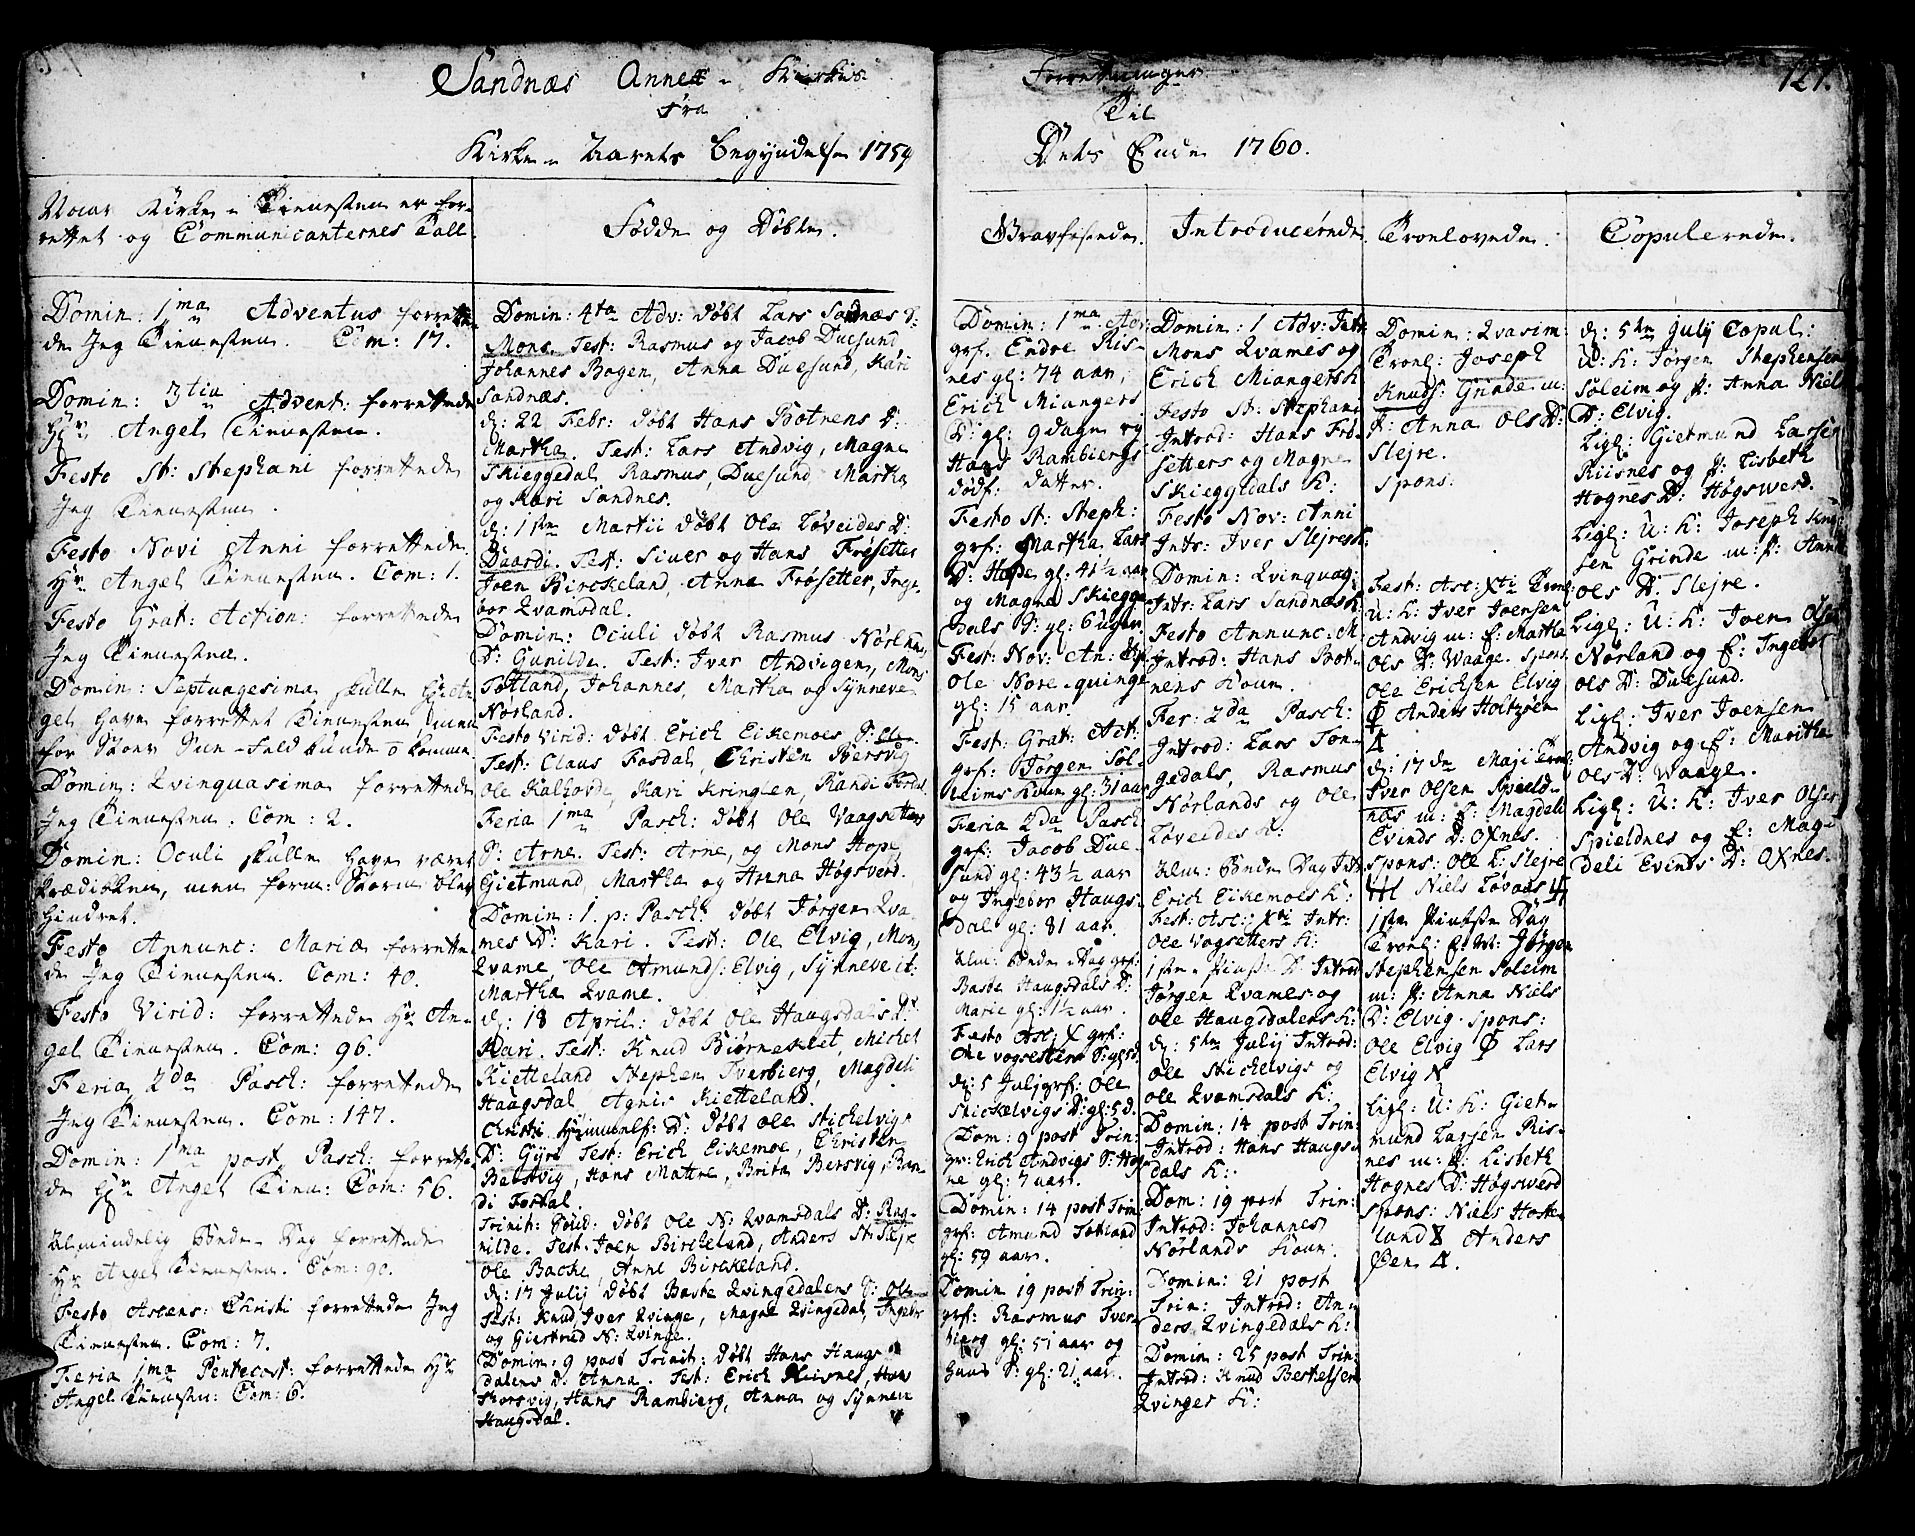 Sandnæs Annex Kirkes Forretninger 127.
Fra Til
Kirke-Aarets Begyndelse 1759 Dets Ende 1760.
Naar Kirke-Tienesten er for-
rettet og Communicanternes Tall
Domin: 1ma Adventus forrette-
de Jeg Tienesten. Com: 17.
Domin: 3tia Advent: forrettede
Hr Angel Tienesten.
Festo St: Stephani forrettede
Jeg Tienesten.
Festo Novi Anni forrettede
Hr Angel Tienesten. Com: 1.
Festo Grat: Action: forrettede
Jeg Tienesten.
Domin: Septuagesima skulle
have forrettet Tienesten, men
for Storm kunde o komme
Domin: Qvinquasima forrettede
Jeg Tienesten. Com: 2.
Domin: Oculi skulle have været
Prædicken, men form: Storm blev
hindret.
Festo Annunc: Mariæ forrette-
de Jeg Tienesten. Com: 40.
Festo Virid: forrettede Hr An-
gel Tienesten. Com: 96.
Feria 2da Pasch: forrettede
Jeg Tienesten. Com: 147.
Domin: 1ma post Pasch: forrette-
de Hr Angel Tien: Com: 56.
Almindelig Bønde-Dag forrettede
Hr Angel Tienesten. Com: 90.
Festo Ascens: Christi forrettede Jeg
Tienesten. Com: 7.
Feria 1ma Pentecost: forrettede Hr
Angel Tienesten: Com: 6.
Fødde og Døbte.
Domin: 4ta Adv: døbt Lars Sandnæs S:
Mons. Test: Rasmus og Jacob Duesund
Johannes Bogen, Anna Duesund, Kari
Sandnæs.
d: 22 Febr: døbt Hans Botnens D:
Martha. Test: Lars Andvig, Magne
Skieggedal Rasmus, Duesund Martha
og Kari Sandnes.
d: 1ste Martii døbt Ole Løveides D:
Daardi. Test: Siver og Hans Frøsetter
Joen Birckeland, Anna Frøsetter, Inge-
bor Qvamsdal.
Domin: Oculi døbt Rasmus Nørlands
D: Gunilde. Test: Iver Andvigen, Mons
Totland, Johannes, Martha og Synneve
Nørland.
Festo Virid: døbt Erich Eikemoes S: Ole
Test: Claus Fosdal, Christen Bersvig
Ole Kalhovde, Kari Kringlen, Randi Fosdal.
Feria 1ma Pasch: døbt Ole Vaagsetters
S: Arne. Test: Arne, og Mons Hope,
Gietmund, Martha og Anna Høgsverd.
Domin: 1. p: Pasch: døbt Jørgen Qva-
mes D: Kari. Test: Ole Elvig, Mons
Qvame, Ole Amunds: Elvig, Synneve it:
Martha Qvame.
d: 18 April: døbt Ole Haugsdals D:
Kari. Test: Knud Biørneklet, Michel
Kietteland Stephen Tverbierg, Magdeli
Haugsdal Agnis Kietteland.
Christi Himmelf: D: døbt Ole Stichelvigs
D: Gyri Test: Erich Eikemoe, Christen
Berstvig, Hans Mattre, Brita Bersvig, Ran-
di Fosdal.
Trinit: Sønd: døbt Ole N: Qvamsdals D: Rag-
nilde. Test. Joen Birckeland, Anders St: Slejre
Ole Backe, Anne Birckeland.
d: 17 Julij døbt Baste Qvingedalens S: Ole
Test: Knud, Iver Qvinge, Magne Qvingedal, Ingebr
og Giertrud N: Qvinge.
Domin: 9 post Trinit: døbt Hans Haugs-
dalens D: Anna. Test: Erich Riisnes, Hans
Storsvig, Hans Rambierg, Anna og Synneve
Haugsdal.
Gravfæstede.
Domin: 1ma Adv:
grf. Endre Ris-
nes gl: 74 aar,
Erich Miangers
D: gl: 9 dage og
Hans Rambiergs
dødf: datter.
Festo St: Steph:
grf: Martha Lars
D: Hope gl: 41½ aar
og Magne Skiegge-
dals S: gl: 6 uger.
Fest: Nov: An: grf:
Ole Nore-qvinge
gl: 15 aar.
Fest: Grat: Act:
grf: Jørgen Sol-
leims Kone gl: 31 aar
Feria 2da Pasch
grf: Jacob Due-
sund gl: 43½ aar
og Ingebor Haugs-
dal gl: 81 aar.
Alm: Bønde Dag grf:
Baste Haugsdals D:
Marie gl: 1½ aar.
Festo Asc: X grf:
Ole Vogsetters S: gl:
d: 5 Julj grf: Ole
Stickelvigs D: gl: 5 d.
Dom: 9 post Trin:
gr: Erich Andvigs S: Mog-
ne gl: 7 aar.
Domin: 14 post Trin:
grf: Amund Totland
gl: 59 aar.
Domin 19 post Trin:
grf: Rasmus Tver-
bierg gl: 51 aar og
hans S: gl: 21 aar.
Introducerede
Domin: 1 Adv: Intr:
Mons Qvames og
Erich Miangers K:
Festo St: Stephani
Introd: Hans Frø-
setters og Magne
Skieggedals K:
Festo Nov: Anni
Intr: Iver Slejres K:
Domin: Qvinquag:
Intr: Lars Sandnes K:
Festo Annunc: M:
Introd: Hans Bot-
nens Kone.
Fer: 2da Pasch:
Introd: Lars Ton-
gedals, Rasmus
Nørlands og Ole
Løveides K:
Alm: Bønde Dag Intr:
Erich Eikemoes K:
Fest: Asc: Xti Intr:
Ole Vogsetters K:
1ste Pintse D: Introd
Jørgen Qvames og
Ole Haugsdalens K:
d: 5te Julij Introd:
Ole Stichelvigs og
Ole Qvamsdals K:
Domin: 14 post Trin:
Introd: Hans Haugs-
dals K:
Dom: 19 post Trin:
Introd: Johannes
Nørlands Kone.
Domin: 21 post
Trin: Introd: An-
ders Qvingedals K:
Domin: 25 post Trin:
Introd: Knud Bertelsen
Qvinges K:
Troelovede.
Domin: Qvasim:
Troel: Joseph
Knuds: Grinde m:
P: Anna Ols D:
Slejre.
Spons:
Fest: Asc: Xti Troel:
U: K: Iver Joensen
Andvig m: P: Martha
Ols D: Waage. Spons
Ole Erichsen Elvig
Anders Holtzøen
d: 17de Maji Troel:
Iver Olsen Spield-
næs m: P: Magdele
Evinds D: Oxnes.
Spons: Ole L: Slejre
Niels Løvaas
1ste Pintse Dag
Troel: Jørgen
Stephensen Soleim
m: P: Anna Niels
D: Elvig. Spons:
Ole Elvig Lars
Elvig
Ligl: U: K: Giet-
mund Larsen Ris-
nes m: P: Lisbeth
Hognes D: Høgsverd
Spons: Niels Hoste-
land Anders
Øen
Copulerede.
d: 5te July Copul:
U: K: Jørgen Stephensen
Soleim og P: Anna Niels
D: Elvig.
Ligl: Gietmund Larsen
Riisnes og P: Lisbeth
Hognes D: Høgsverd.
Ligl: U: K: Joseph Knud-
sen Grinde m: P: Anna
Ols D: Slejre.
Ligl: U: K: Joen Olsen
Nørland og P: Ingebor
Ols D: Duesund.
Ligl: Iver Joensen
Andvig og P: Maritha
Ols D: Waage.
Ligl: U: K: Iver Olsen
Spieldnes og P: Mag-
deli Evinds D: Oxnes.